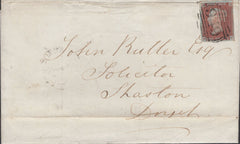 John Rutter Esq
Solicitor
Shaston
Dorset